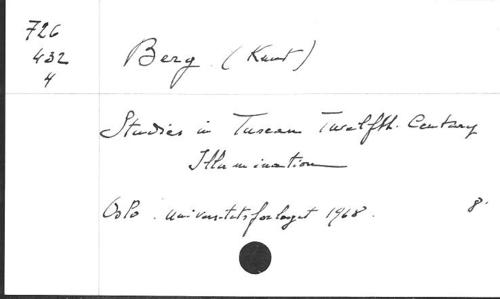 726
432
4
Berg (Knut)
Studies in Tuscan Twelfth-Century
Illumination
Oslo. Universitetsforlaget 1968.
8°